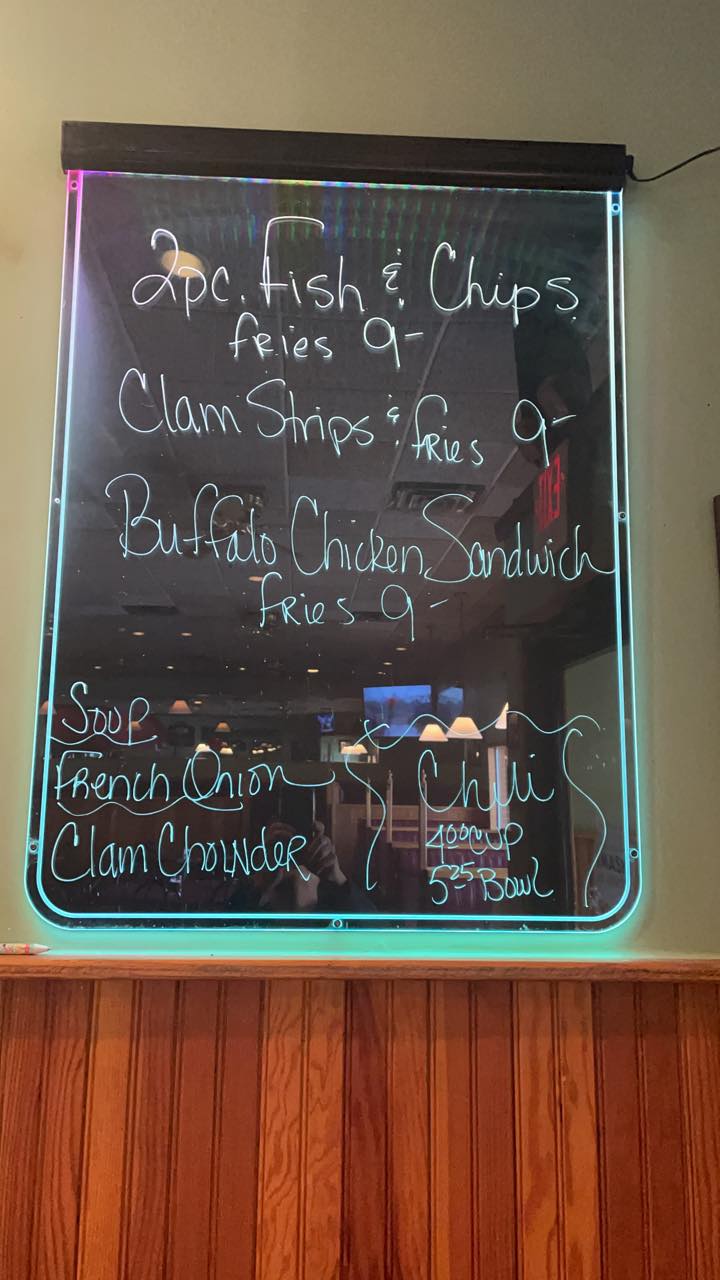 2pc. Fish & Chips
fries 9-
Clam Strips & fries 9-
Buffalo Chicken Sandwich
fries 9-
Soup
French Onion
Clam Chowder
Chili
4.00 CUP
5.25 Bowl
EXIT